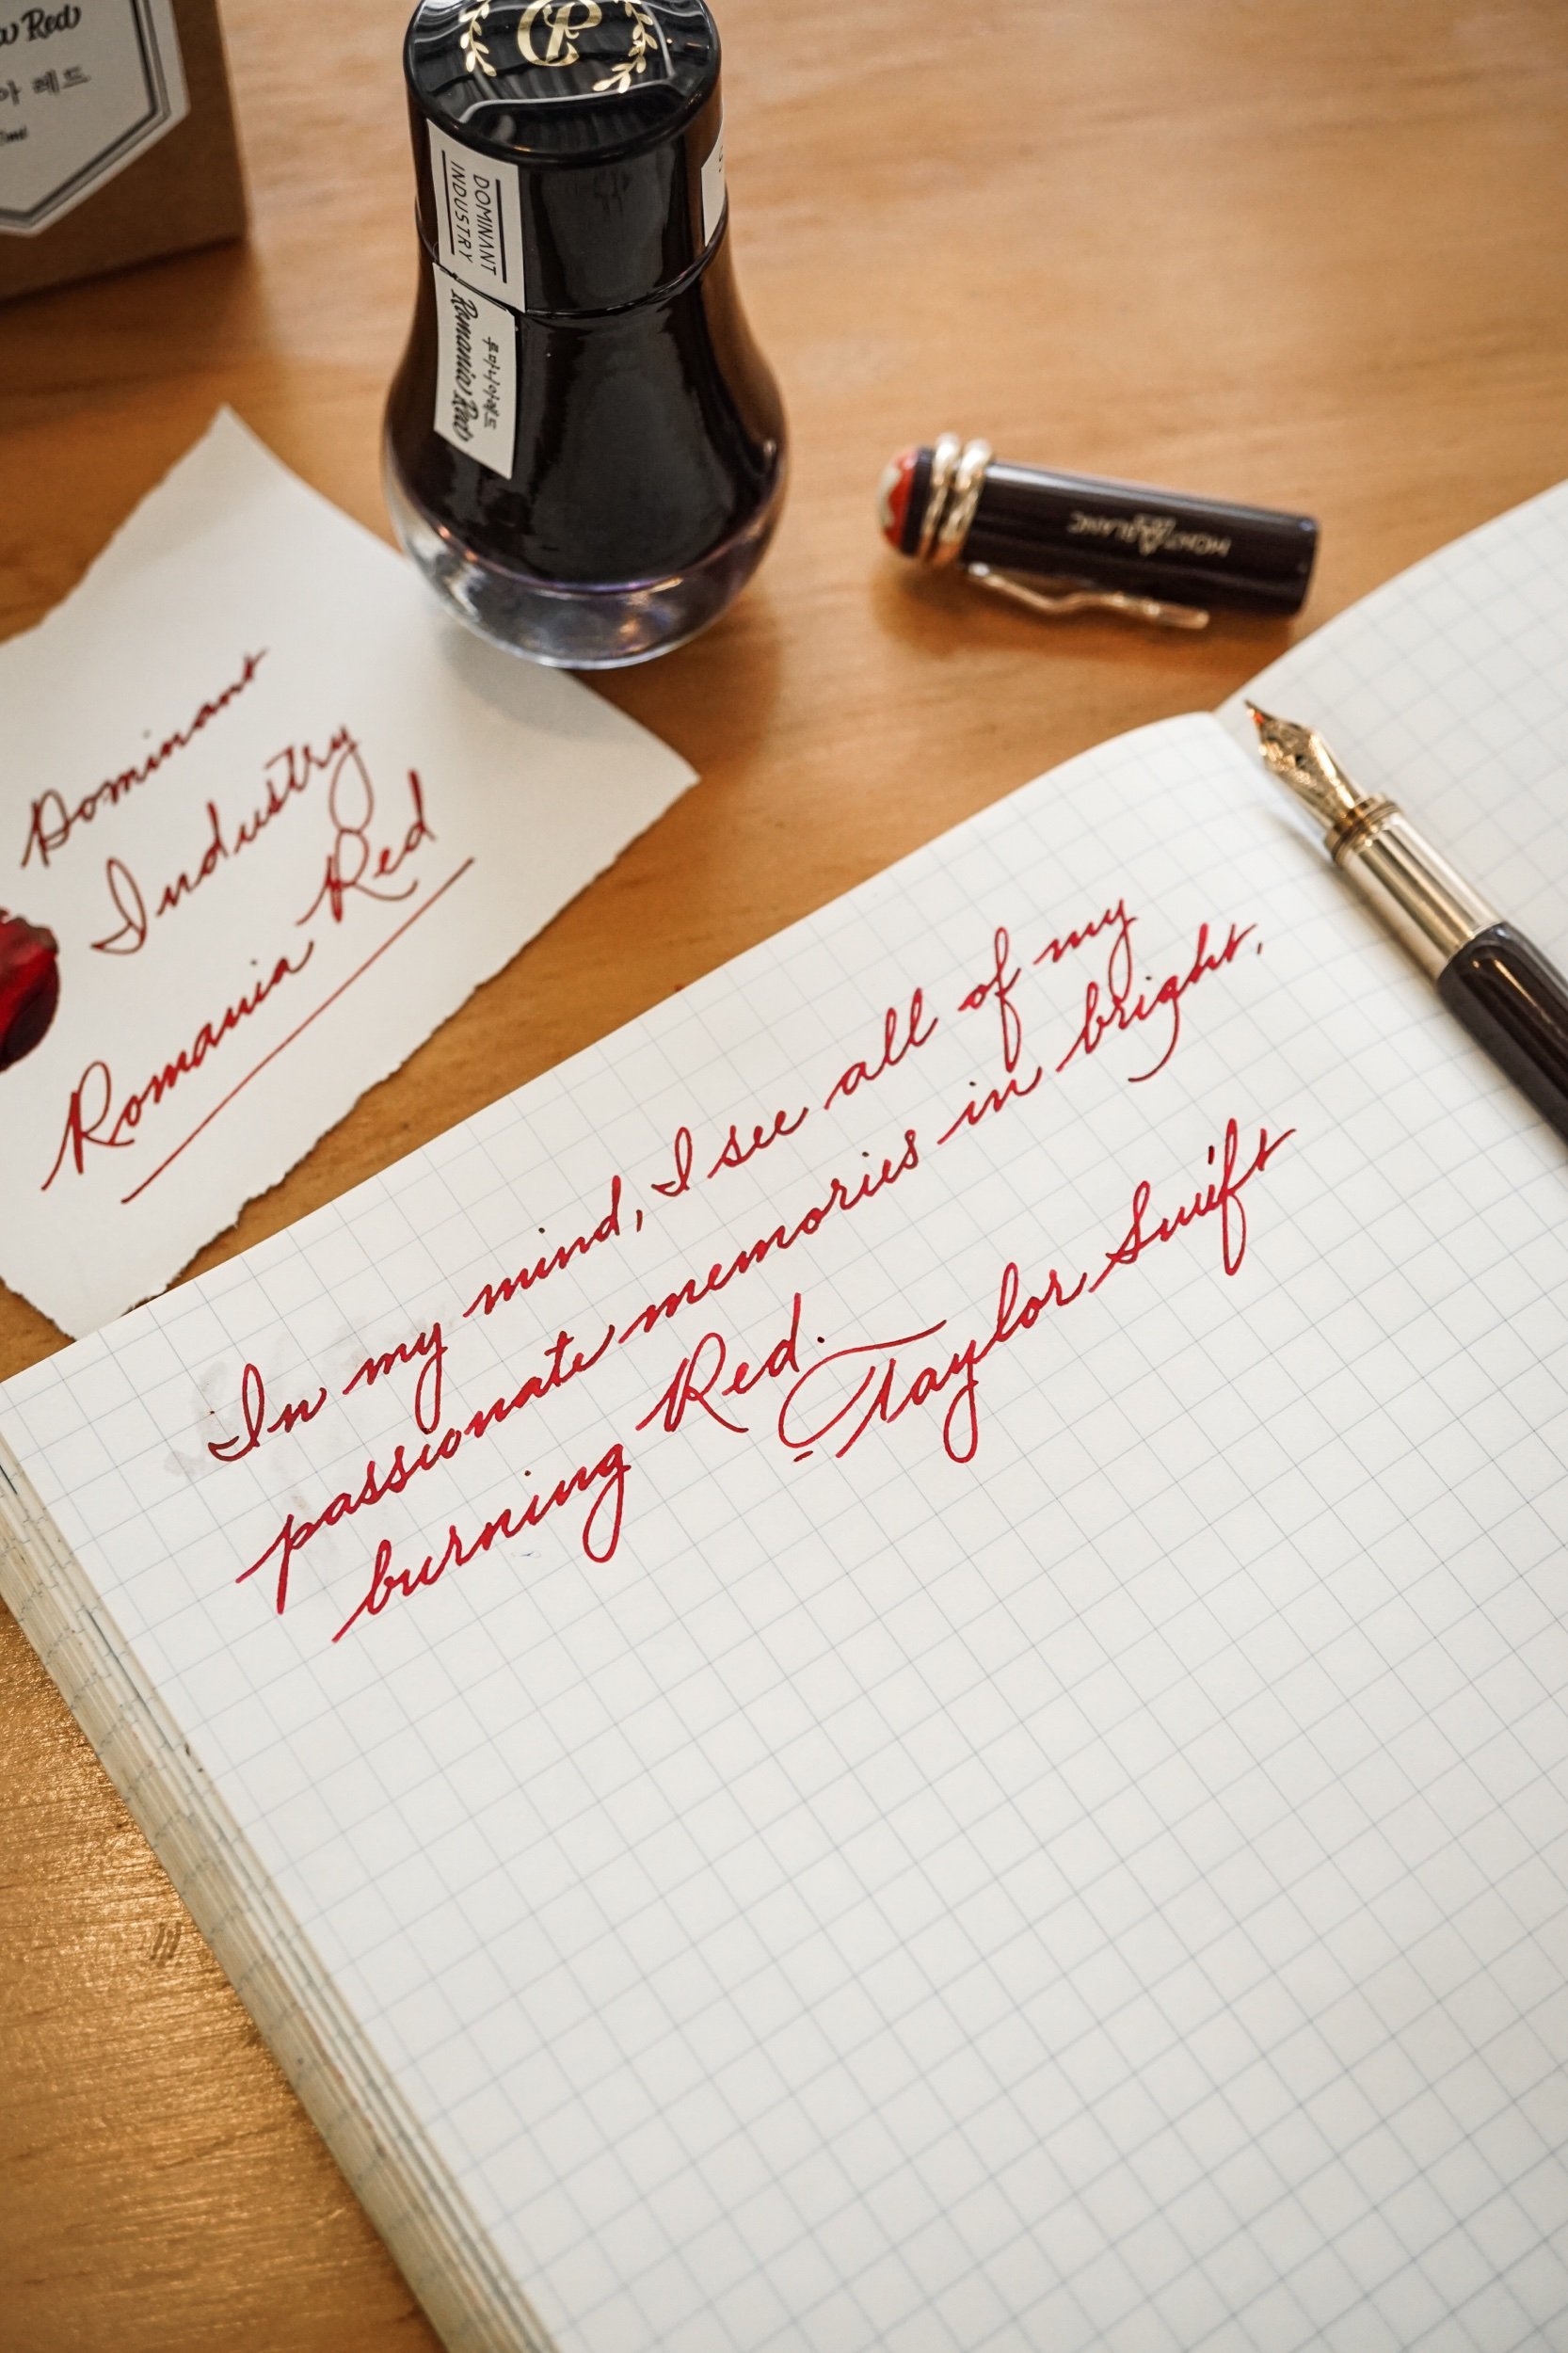 Red
아 레드
DOMINANT
INDUSTRY
Romania Red
루마니아레드
MONTBLANC
Dominant
Industry
Romania Red
In my mind, I see all of my
passionate memories in bright,
burning Red.
- Taylor Swift